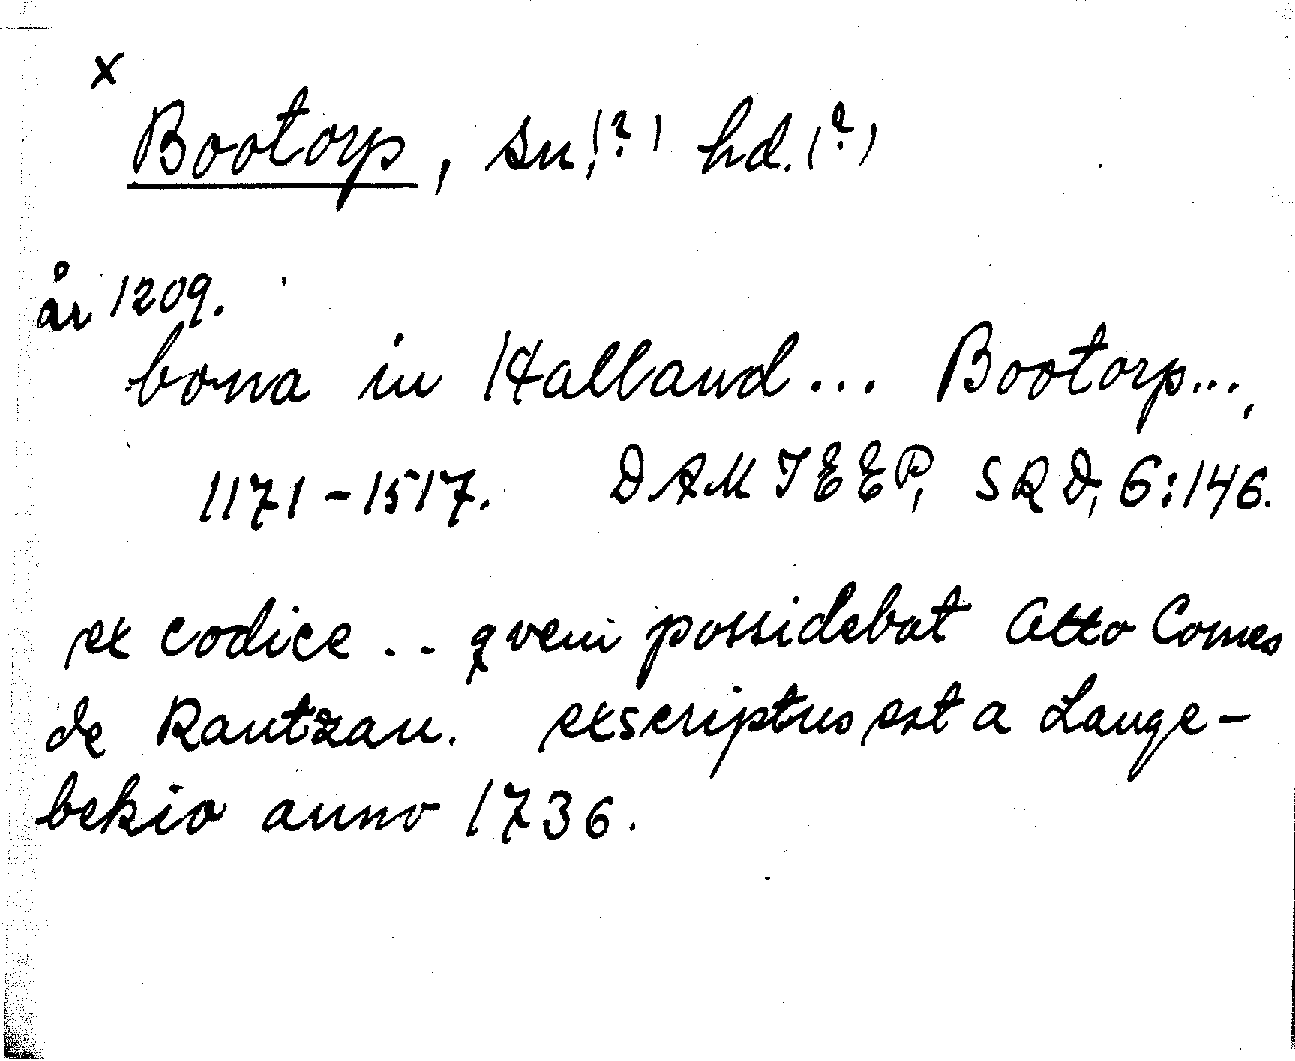 x
Bootorp, sn(?) hd.(?)
år 1209.
bona in Halland... Bootorp...,
1171-1517. DAMTEEP, SRD, 6:146.
ex codice .. qvem possidebat Otto Comes
de Rantzau. exscriptus est a Lange-
bekio anno 1736.